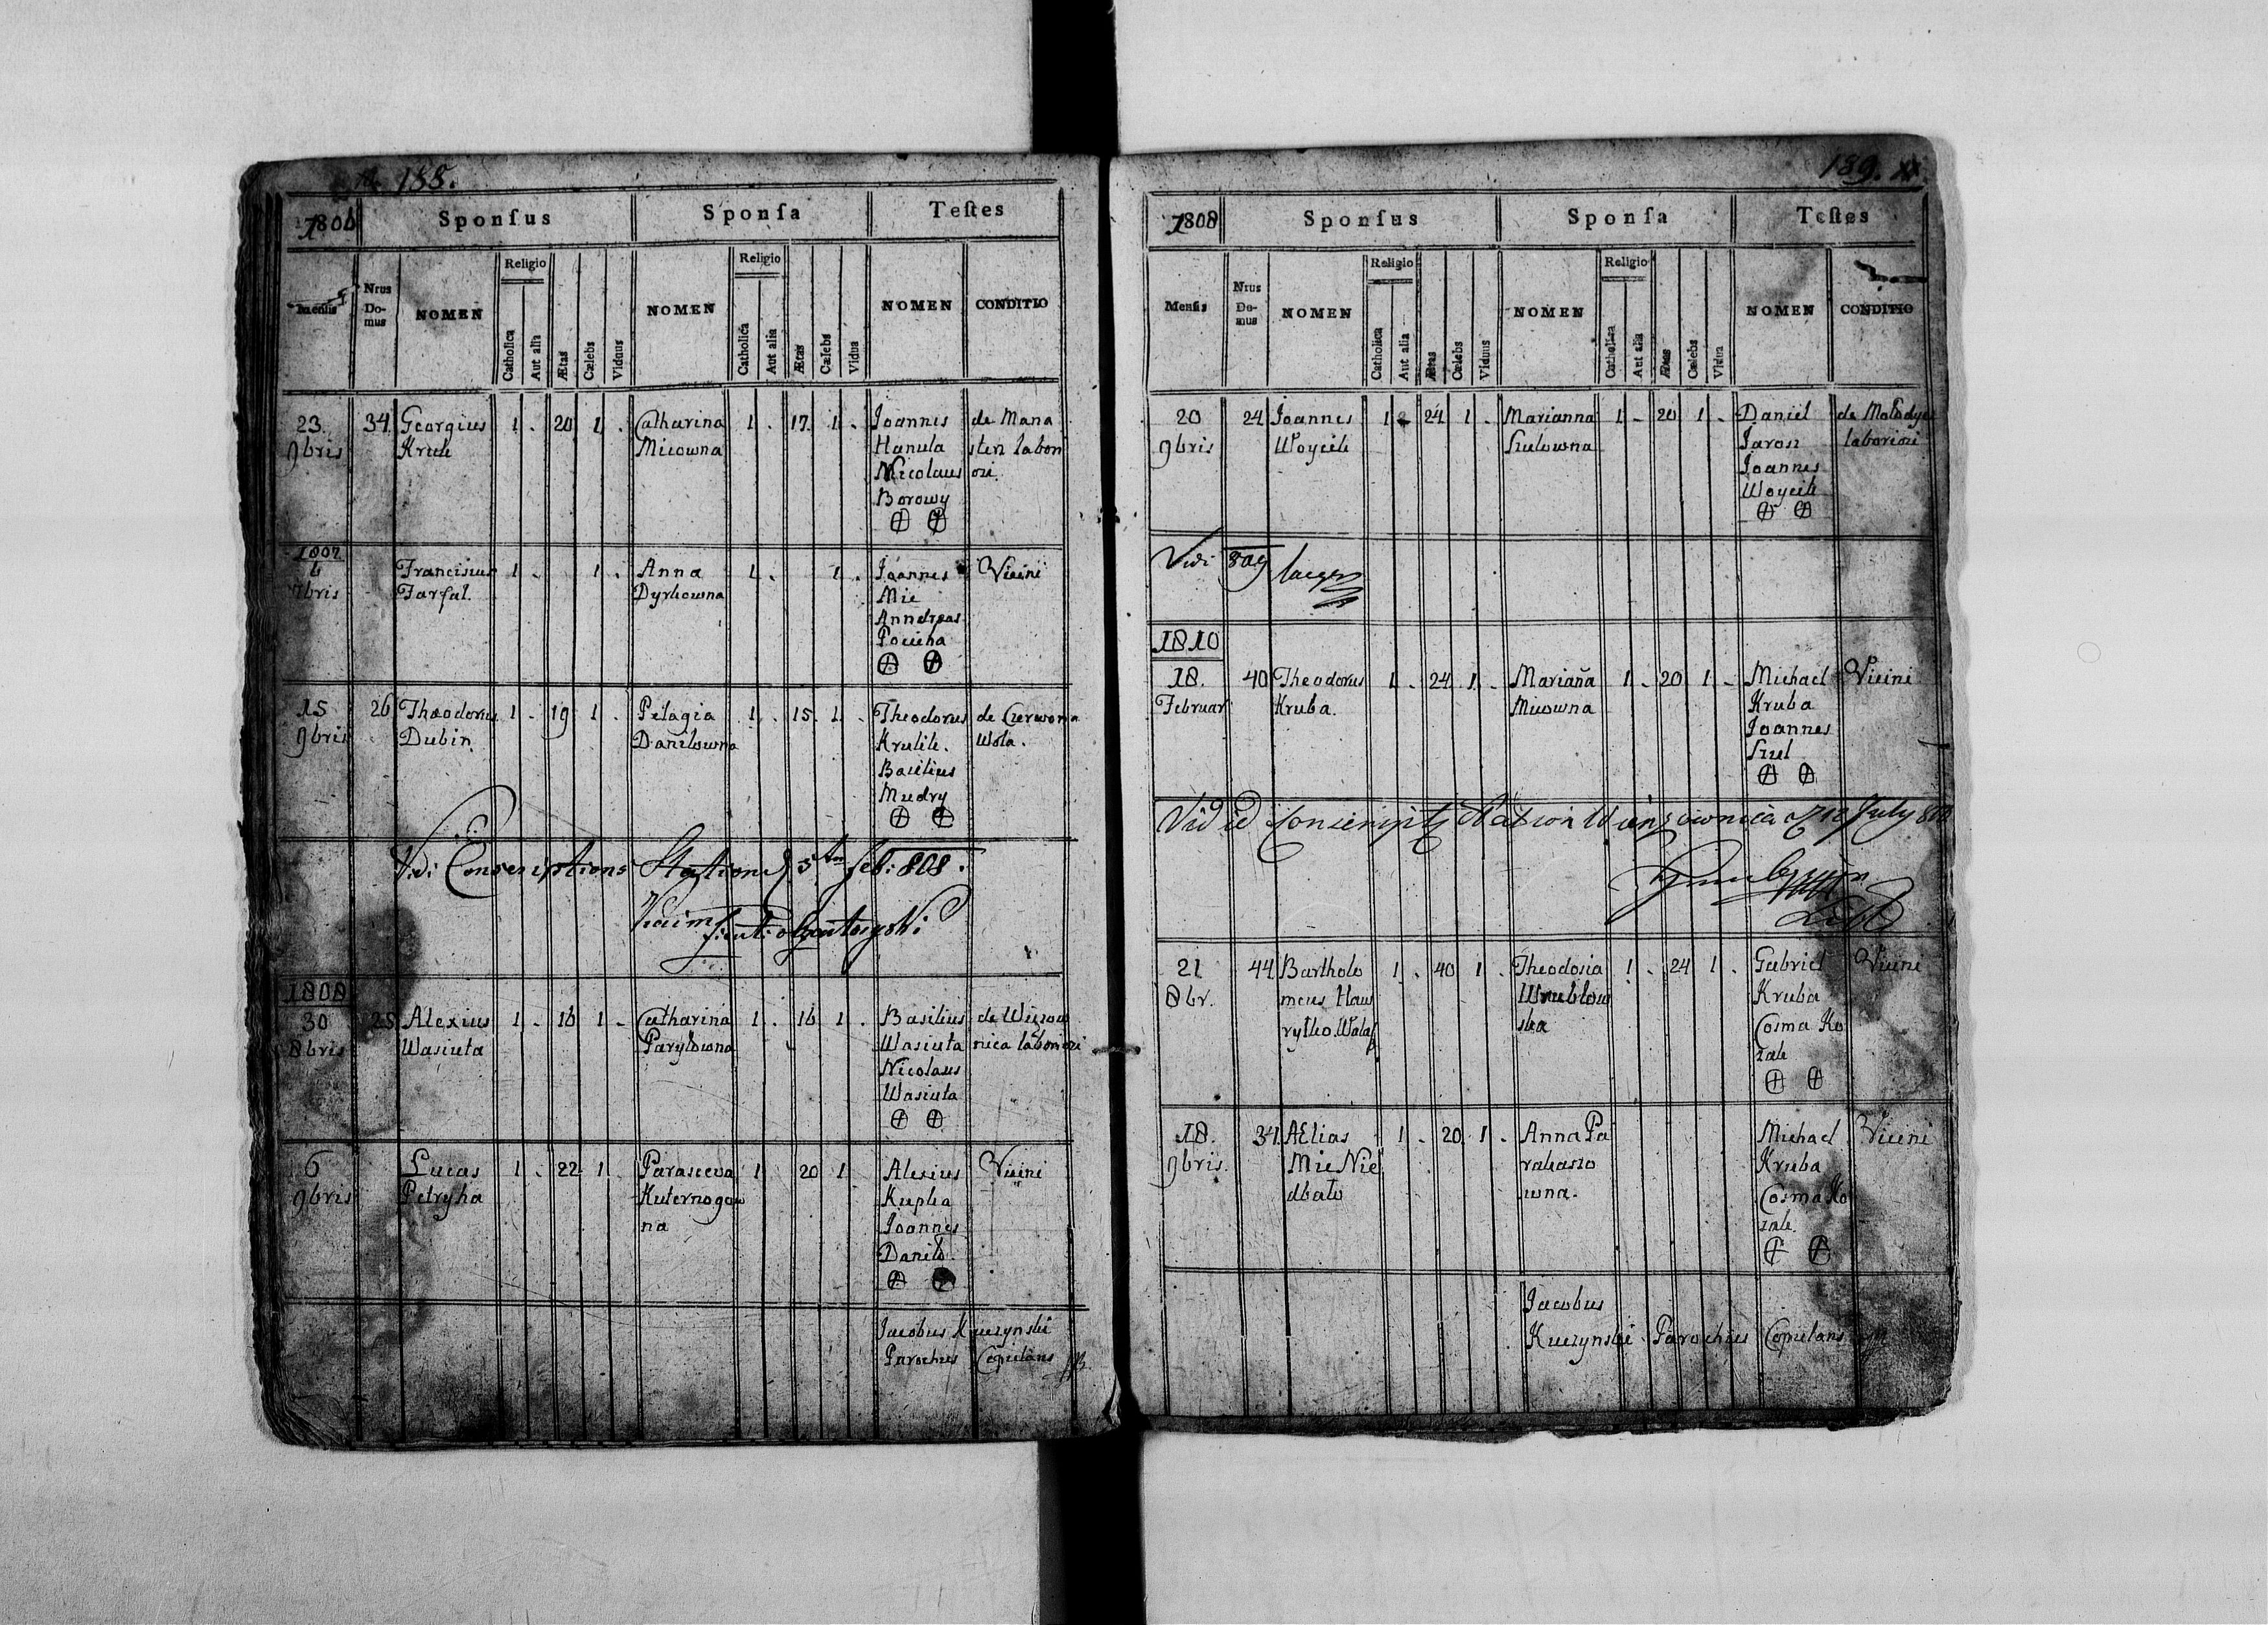 188.
1806 Sponſus Sponſa Teſtes
Menſis Nrus Do-mus NOMEN Religio Catholica Aut alia Ætas Cælebs Viduus NOMEN Religio Catholica Aut alia Ætas Cælebs Vidua NOMEN CONDITIO
23. 34 Georgius 1 - 20 1 - Catharina 1 - 17 1 - Joannes de Mana
9bris Kruk Micowna Hanula ster labori
Nicolaus osi.
Borowy
1807
6 Francisius 1 - 1 - Anna 1 - 1 - Joannes Vicini
7bris Farfal. Dyrkowna Mic
Anndreas
15 26 Theodorus 1 - 19 1 - Pelagia 1 - 15 1 - Theodorus de Czerwona
9bris Dubin. Danilowna Krulik. Wola.
Basilius
Mudry
Vidi Conscriptions Station 5ten feb: 808.
1808
30 25 Alexius 1 - 16 1 - Catharina 1 - 16 1 - Basilius de Więzow
8bris Wasiuta Parylowna Wasiuta nica laboriosi
Nicolaus
Wasiuta
6 Lucas 1 - 22 1 - Parasceva 1 20 1 - Alexius Vicini
9bris Petryha Kuternogow Kupka
na Joannes
Danilo
Jacobus Kuczynski
Parochus Copulans
189.
1808 Sponſus Sponſa Teſtes
Menſis Nrus Do-mus NOMEN Religio Catholica Aut alia Ætas Cælebs Viduus NOMEN Religio Catholica Aut alia Ætas Cælebs Vidua NOMEN CONDITIO
20 24 Joannes 1 - 24 1 - Marianna 1 - 20 1 - Daniel de Molodycz
9bris Woycik Szulowna Jarosz laboriosi
Joannes
Woycik
Vidi 809
1810
18. 40 Theodorus 1 - 24 1 - Mariana 1 - 20 1 - Michael Vicini
Februar Kruba. Micowna Kruba
Joannes
Szul
Vidi Conscripts Station Więzownica 12 July 810
21 44 Bartholo 1 - 40 1 - Theodosia 1 - 24 1 - Gabriel Vicini
8br. meus Haw Wrublow Kruba
ska Cosma Ko
zak
18. 34 AElias 1 - 20 1 - Anna Pa Michael Vicini
9bris. Mic Nie rakaszo Kruba
dbało wna. Cosma Ko
zak
Jacobus
Kuczynski Parochus Copulans